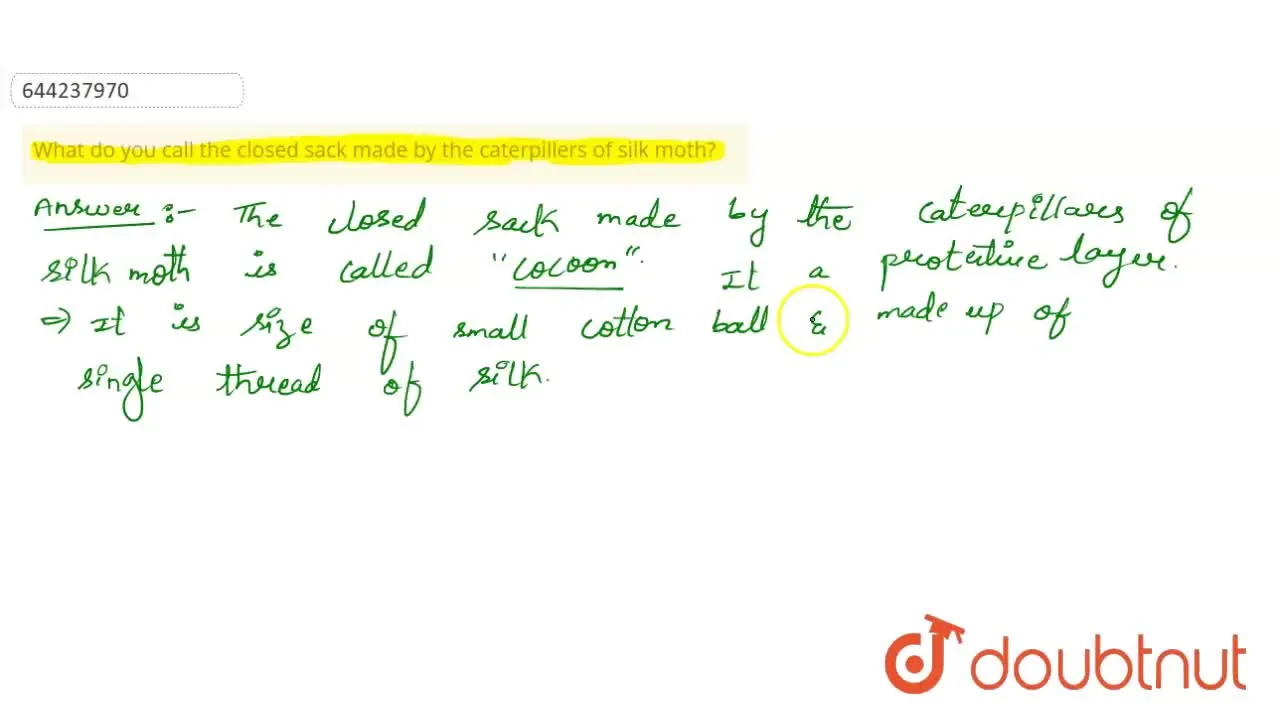 644237970
What do you call the closed sack made by the caterpillers of silk moth?
Answer :- The closed sack made by the caterpillars of
silk moth is called "cocoon". It a protective layer.
⇒ It is size of small cotton ball & made up of
single thread of silk.
doubtnut